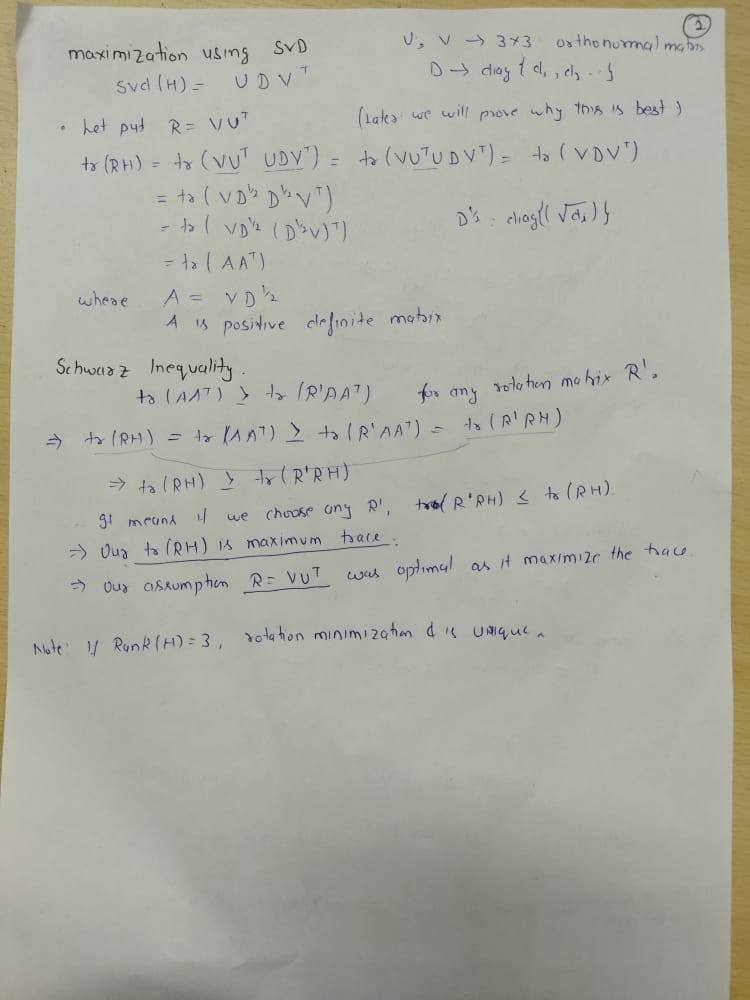 2
maximization using SVD
U, V → 3×3 orthonormal matrix
SVd (H) = U D V^T
D → diag { d₁, d₂ .. }
• Let put R = VU^T (Later we will prove why this is best)
tr(RH) = tr(VU^T UDV^T) = tr(VU^TUDV^T) = tr(VDV^T)
= tr(VD^½ D^½V^T)
= tr( VD^½ (D^½V)^T)
D^½ : diag{(√dᵢ)}
= tr(AA^T)
where A = VD^½
A is positive definite matrix
Schwarz Inequality.
tr(AA^T) ≥ tr(R'AA^T) for any rotation matrix R'.
⇒ tr(RH) = tr(AA^T) ≥ tr(R'AA^T) = tr(R'RH)
⇒ tr(RH) ≥ tr(R'RH)
It means if we choose any R', tr(R'RH) ≤ tr(RH).
⇒ Our tr(RH) is maximum trace.
⇒ Our assumption R = VU^T was optimal as it maximize the trace.
Note: If Rank(H)=3, rotation minimization is unique.